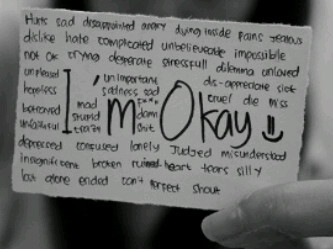 Hurts sad disappointed angry dying inside pains jealous
dislike hate complicated unbelieveable impossibile
not ok crying desperate stressfull dilemma unloved
unpleased unimportant dis-appreciate sick
hopeless sadness sad cruel die miss
betrayed mad f*** 
unfaithful stupid damn
crazy shit
I'm Okay =)
depressed confused lonely Judged misunderstood
insignificent broken ruined heart tears silly
lost alone ended can't perfect shout